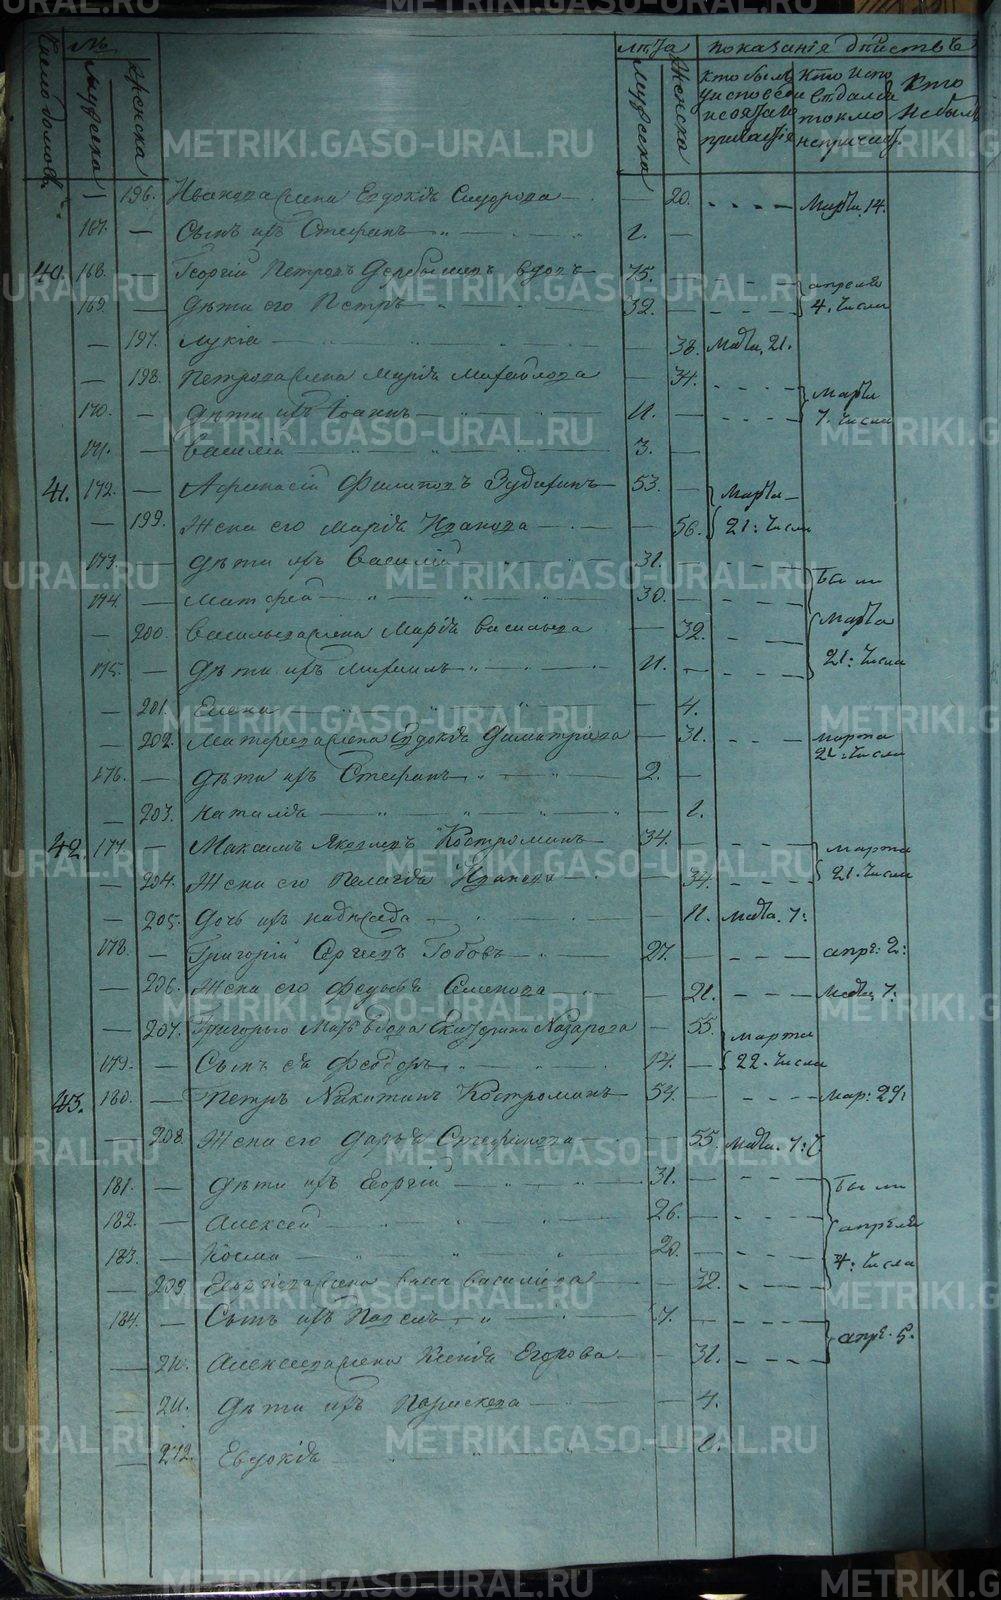 Число домовъ.
№
Мужеска
Женска
лѣта
Мужеска
Женска
показанія дѣйствъ
Кто былъ
у исповѣди
и святаго
причастія
Кто испо
вѣдался
токмо
непричаст.
Кто
небылъ
196. Иванова жена Евдокія Сидорова 20. Марта. 14.
167. Сынъ ихъ Стефанъ 1.
40. 168. Георгій Петровъ вдовъ 75. апреля
169. Дѣти его Петръ 32. 4. числа
197. Лукія 38. Марта. 21.
198. Петрова жена Марія Михайлова 34. Марта
170. Дѣти ихъ Іоаннъ 11. 7. числа
171. Василій 3.
41. 172. Афанасій Филиповъ 53. Марта
199. Жена его Марія Иванова 56. 21: числа
173. Дѣти ихъ Василій 31. Были
174. Матфей 30. Марта
200. Васильева жена Марія Васильева 32. 21: числа
175. Дѣти ихъ Михаилъ 11.
201. Елена 4.
202. Матфеева жена Евдокія Димитріева 31. марта 21. числа
176. Дѣти ихъ Стефанъ 2.
203. Наталія 1.
42. 177. Максимъ Яковлевъ Костроминъ 34. марта
204. Жена его Пелагія Иванова 34. 21. числа
205. Дочь ихъ 11. Марта. 7:
178. Григорій Сергѣевъ Гобовъ 27. апре: 2:
206. Жена его Федосья Семенова 21. Марта. 7:
207. Григорью вдова Екатерина Назарова 55. марта
179. Сынъ ея Феодоръ 14. 22. числа
43. 180. Петръ Никитинъ Костроминъ 59. Мар: 29:
208. Жена его Дарья Стефанова 55. Марта. 7:
181. Дѣти ихъ Георгій 31. Были
182. Алексей 26. апреля
183. Косма 20. 4. числа
209. Георгіева жена Анна Василіева 32.
184. Сынъ ихъ Павелъ 7. апре. 5.
210. Алексеева жена Ксенія Егорова 31.
211. Дѣти ихъ Параскева 4.
212. Евдокія 1.
METRIKI.GASO-URAL.RU